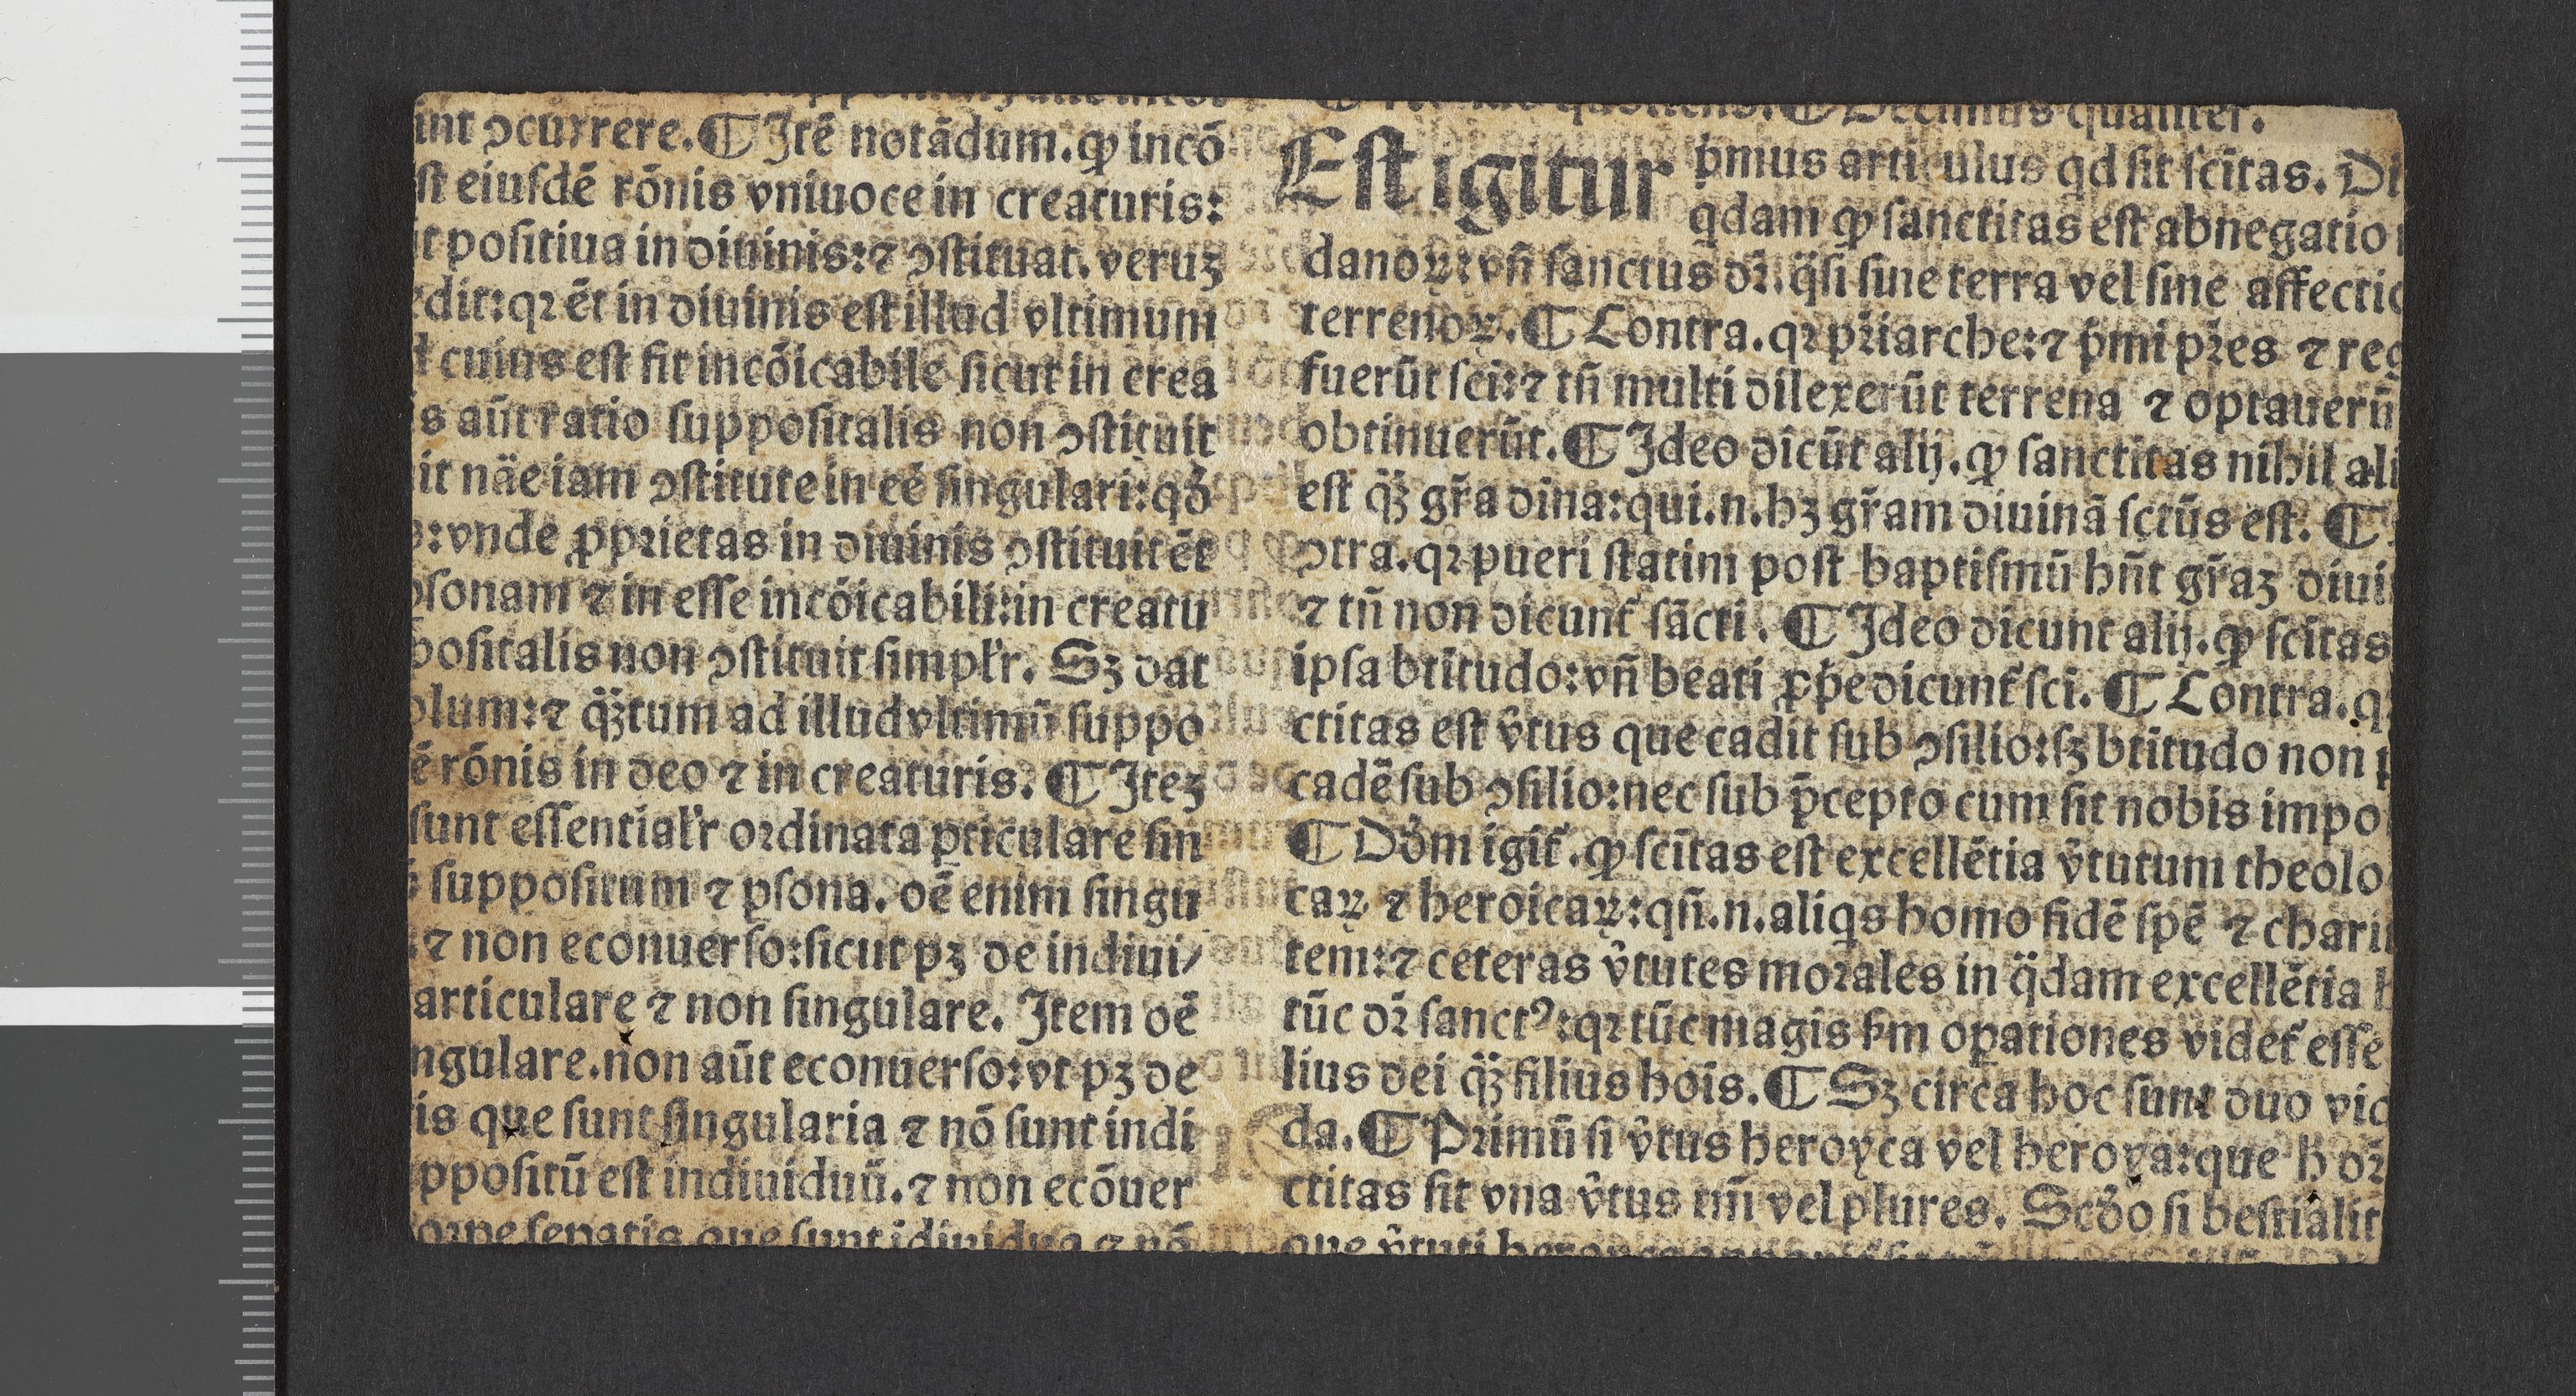 int ↄcurrere. ¶ Itē notādum. ꝙ incō
ſt eiuſdē rōnis vniuoce in creaturis:
t poſitiua in diuinis: ⁊ ↄſtituat. veruꝫ
dit: qꝛ ēt in diuinis eſt illud vltimum
cuius eſt fit incōicabile ſicut in crea
s aūt ratio ſuppoſitalis non ↄſtituit
it näe iam ↄſtitute in eē ſingulari: qd̓
: vnde ꝓpꝛietas in diuinis ↄſtituit ēt
ꝑſonam ⁊ in eſſe incōicabili: in creatu
poſitalis non ↄſtituit ſimpłr. Sꝫ dat
olum: ⁊ q̈ꝫtum ad illud vltimū ſuppo
ē rōnis in deo ⁊ in creaturis. ¶ Iteꝫ
ſunt eſſentiałr oꝛdinata ꝑticulare ſin
ſuppoſitum ⁊ ꝑſona. oē enim ſingu
⁊ non econuerſo: ſicut pꝫ de indiui/
articulare ⁊ non ſingulare. Item oē
ngulare. non aūt econuerſo: vt pꝫ de
is que ſunt ſingularia ⁊ nō ſunt indi
ppoſitū eſt indiuiduū. ⁊ non ecōuer
oꝛpe ſeꝑatis que ſunt idiuidua ⁊ nō
¶ Decimus qualiter.
Eſt igitur p̓mus articulus qd ſit ſcītas. Di
q̇dam ꝙ ſanctitas eſt abnegatio
danoꝝ: vñ ſanctus dꝛ̄. q̈ſi ſine terra vel ſine affectio
terrenoꝝ. ¶ Contra. qꝛ pr̄iarche: ⁊ p̓mi pr̄es ⁊ reg
fuerūt ſci: ⁊ tñ multi dilexerūt terrena ⁊ optauerū
obtinuerūt. ¶ Ideo dicūt alij. ꝙ ſanctitas nihil ali
eſt q̈ꝫ gr̄a dina: qui. n. hꝫ gr̄am diuinā ſctūs eſt. ¶
ↄtra. qꝛ pueri ſtatim poſt baptiſmū hñt gr̄aꝫ diui
⁊ tñ non dicunt᷑ ſācti. ¶ Ideo dicunt alij. ꝙ ſcitas
ipſa btitudo: vñ beati ꝓp̓e dicunt᷑ ſci. ¶ Contra. qꝛ
ctitas eſt v̂tus que cadit ſub ↄſilio: ſꝫ btitudo non
cadē ſub ↄſilio: nec ſub p̄cepto cum ſit nobis impo
¶ Dd̓m igit᷑. ꝙ ſcītas eſt excellētia v̂tutum theolo
caꝝ ⁊ heroicaꝝ: qñ. n. aliq̇s homo fidē ſpē ⁊ chari
tem: ⁊ ceteras v̂tutes moꝛales in q̈dam excellētia h
tūc dꝛ̄ ſanctꝰ: qꝛ tūc magis ẜm oꝑationes videt᷑ eſſe
lius dei q̈ꝫ filius hoīs. ¶ Sꝫ circa hoc ſunt duo vid
da. ¶ Pꝛimū ſi v̂tus heroyca vel heroya: que h̓ dꝛ̄
ctitas ſit vna v̂tus tm̄ vel plures. Scd̓o ſi beſtialit
que v̂tuti